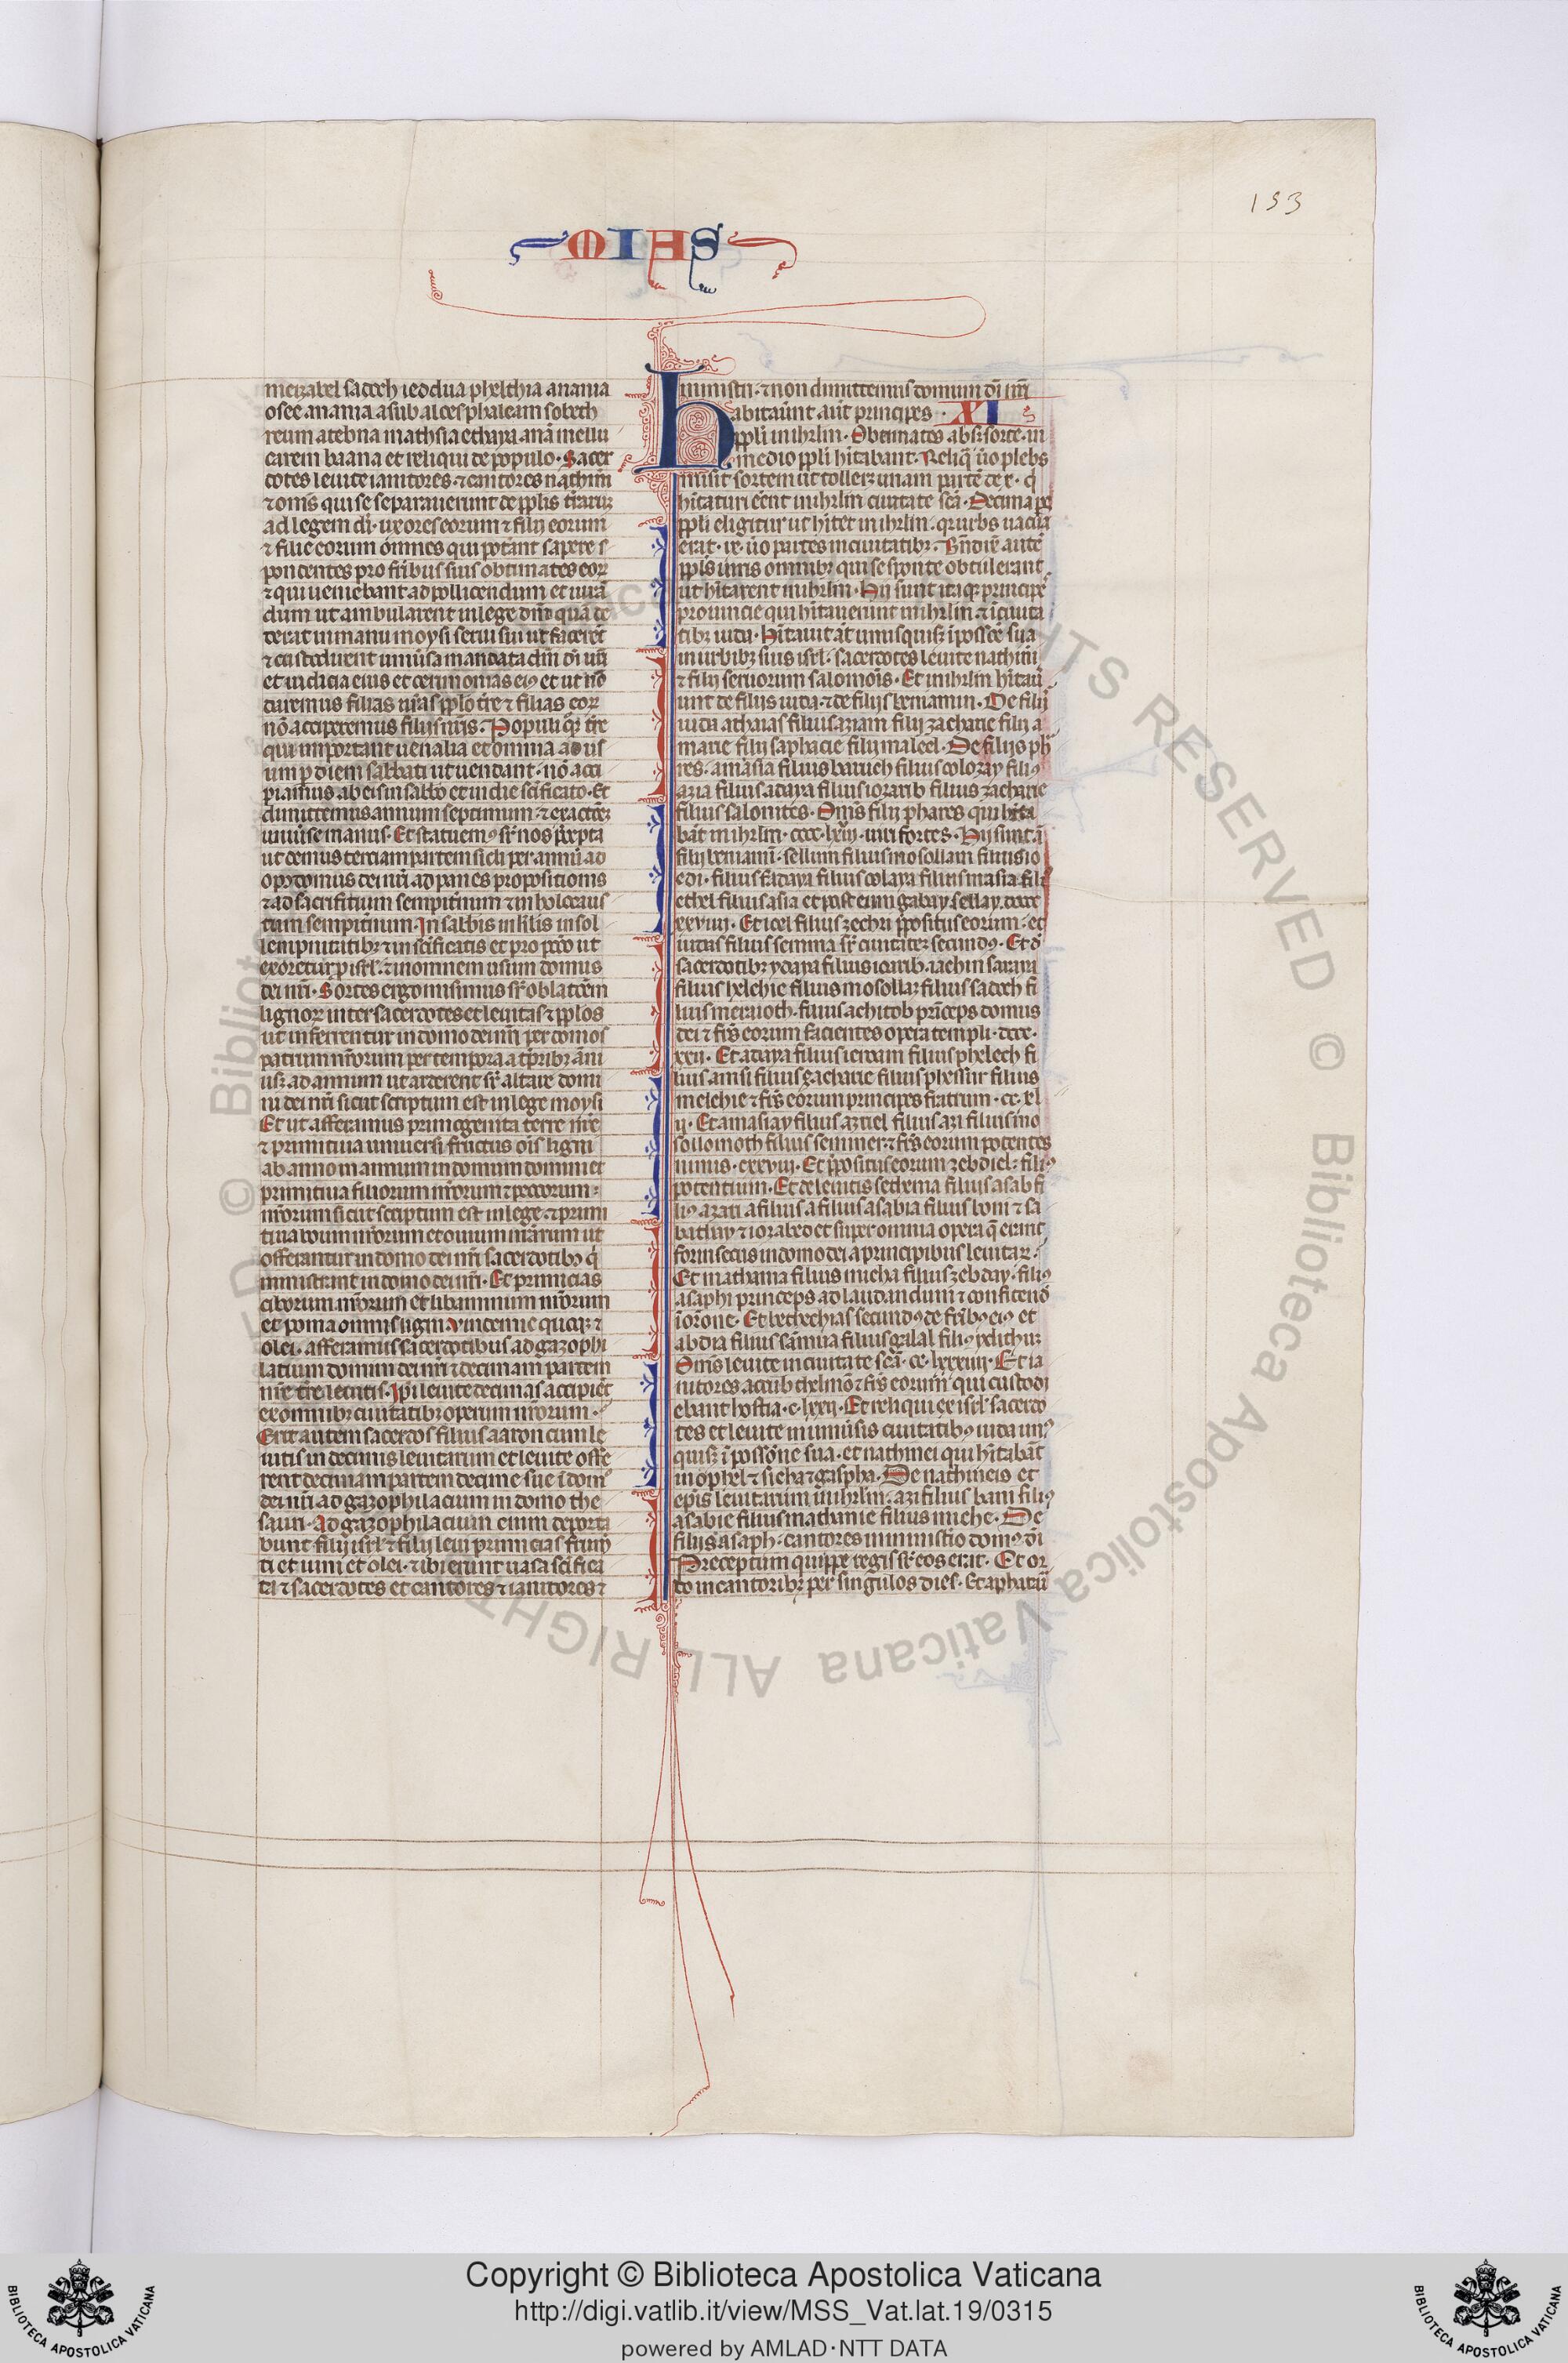 153
MIAS
meizabel sadoch ieddua phelthia anania
osee anania asub aloes phaleam sobeth
reum atebna mathsia
carem baana et reliqui de populo. Sacer
dotes leuite ianitores. ⁊ cantores nathinei
⁊ om̄s qui se separauerunt de pp̄lis
ad legem dī. uxores eorum ⁊ filij eorum
⁊ filie eorum omnes qui poterant sapere s
pondentes pro fr̄ibus suis obtimates eoꝝ
⁊ qui ueniebant ad pollicendum et iurā
dum ut ambularent in lege dn̄i quā de
derat in manu moysi serui sui ut facerēt
⁊ custodirent uniūsa mandata dn̄i dī nr̄i
et iudicia eius et cerimonias eiꝰ et ut nō
daremus filias nr̄as pp̄lo tr̄e ⁊ filias eoꝝ
nō acciperemus filijs nr̄is. Populi qꝫ tr̄e
qui important uenalia et omnia ad us
um p diem sabbati ut uendant. nō acci
piamus ab eis in sabbō et in die scīficato. Et
dimittemus annum septimum. ⁊ exactōeꝫ
uniūse manus. Et statuemꝰ sr̄ nos p̄cepta
ut demus terciam partem sicli per annū ad
opꝰ domus dei nr̄i ad panes propositionis
⁊ ad sacrificium sempitnum ⁊ in holocaus
tum sempitnum. In sabbīs in kl̄is in sol
lempnitatibꝫ ⁊ in scīficatis et pro pctō ut
exoretur p isrl̄. ⁊ in omnem usum domus
dei nr̄i. Sortes ergo misimus sr̄ oblatōem
lignoꝝ inter sacerdotes et leuitas ⁊ pp̄los
ut inferrentur in domo dei nr̄i per domos
patrum nr̄orum per tempora a tp̄ribꝫ āni
usꝫ ad annum ut arderent sr̄ altare domi
ni dei nr̄i sicut scriptum est in lege moysi
Et ut afferamus primogenita terre nr̄e
⁊ primitiua uniuersi fructus ois ligni
ab anno in annum in domum domini et
primitiua filiorum nr̄orum ⁊ pecorum
nr̄orum sicut scriptum est in lege. ⁊ primi
tiua boum nr̄orum et ouium nr̄arum ut
offerantur in domo dei nr̄i sacerdotibꝫ q̇
ministrant in domo dei nr̄i. Et primicias
ciborum nr̄orum et libaminum nr̄orum
et poma omnis ligni uindemie quoqꝫ ⁊
olei. afferamus sacerdotibus ad gazophi
lacium domini dei nr̄i ⁊ decimam partem
nr̄e tr̄e leuitis. Ip̄i leuite decimas accipiēt
ex omnibꝫ ciuitatibꝫ operum nr̄orum.
Erit autem sacerdos filius aaron cum le
uitis in decimis leuitarum et leuite offe
rent decimam partem decime sue ī domo
dei nr̄i ad gazophilacium in domo the
sauri. Ad gazophilacium enim deporta
bunt filij isrl̄ ⁊ filij leui primicias frum̄
ti et uini et olei. ⁊ ibi erunt uasa scīfica
ta ⁊ sacerdotes et cantores ⁊ ianitores ⁊
ministri. ⁊ non dimittemus domum dī nr̄i
Habitauerunt aūt principes XI
pp̄li in ihrlm̄. Obtimates absꝫ sorte. in
medio pp̄li hītabant. Reliqͣ uero plebs
misit sortem ut tolleret unam partē de x. q̇
hītaturi erant in ihrlm̄ ciuitate scā. Decima
pp̄li eligitur ut hītet in ihrlm̄. qr urbs uacua
erat. ix. uo partes in ciuitatibꝫ. Bn̄dix autē
pp̄ls uiris omnibꝫ qui se sponte obtulerant
ut hītarent in ihrlm̄. Hij sunt itaqꝫ principes
prouincie qui hītauerunt in ihrlm̄. ⁊ ī ciuita
tibꝫ iuda. Hītauit aūt unusquisqꝫ ī possōe sua
in urbibꝫ suis isrl̄. sacerdotes leuite nathinei
⁊ filij seruorum salomōis. Et in ihrlm̄ hītau
unt de filijs iuda. ⁊ de filijs beniamin. De filijs
iuda athaias filius aziam filij zacharie filij a
marie filij saphacie filij maleel. De filijs pha
res. amasia filius baruch filius colozay filiꝰ
azia filius adaya filius ioiarib filius zacharie
filius salonites. Om̄s filij phares qui hita
bāt in ihrlm̄. cccc. lxviij. uiri fortes. Hij sunt ā
filij beniamin. sellum filius mosollam filius io
edi. filius fadaya filius colaya filius masia filiꝰ
ethel filius asia et post eum gabay. sellay. dcccc
xxviij. Et ioel filius zechri p̄positus eorum. et
iudas filius semma sr̄ ciuitatem secundꝰ. Et d̄
sacerdotibꝫ ydaya filius ioarib. iachin saraya
filius helchie filius mosollaꝫ filius sadoch fi
lius meraioth. filius achitob princeps domus
dei ⁊ fr̄s eorum facientes opera templi. dccc.
xxij. Et adaya filius ieroam filius phelech fi
lius amsi filius zacharie filius phessur filius
melchie ⁊ fr̄s eorum principes fratrum. cc. xl
ij. Et amasiay filius azriel filius azi filius mo
sollomoth filius semmer. ⁊ fr̄s eorum potentes
nimis. cxxviij. Et p̄positus eorum zebdiel. filiꝰ
potentium. Et de leuitis
filius asabia filius boni ⁊ sa
bathay ⁊ iozabed et super omnia opera q̄ erant
forinsecus in domo dei a principibus leuitaꝝ.
Et mathania filius micha filius zebday. filiꝰ
asaph princeps ad laudandum ⁊ confitendū
ī orōne. Et becbechias secundꝰ de fr̄ibꝰ eiꝰ et
abdia filius samua filius galal filiꝰ
Om̄s leuite in ciuitate scā. cc. lxxxiiij. Et ia
nitores accub thelmō ⁊ fr̄s eorum qui custodi
ebant hostia. c. lxxij. Et reliqui ex isrl̄ sacerdo
tes et leuite in uniūsis ciuitatibꝰ iuda unꝰ
quisqꝫ ī possōne sua. et nathinei qui hītabāt
in ophel ⁊ sieha ⁊ gaspha. De nathineis et
ep̄is leuitarum in ihrlm̄. azi filius bani filiꝰ
asabie filius mathanie filius miche. De
filijs asaph. cantores in ministio domꝰ dī
Preceptum quippe regis sr̄ eos erat. Et or
do in cantoribꝫ per singulos dies. Et aphataia
Copyright © Biblioteca Apostolica Vaticana
http://digi.vatlib.it/view/MSS_Vat.lat.19/0315
powered by AMLAD·NTT DATA
BIBLIOTECA APOSTOLICA VATICANA
BIBLIOTECA APOSTOLICA VATICANA
© Biblioteca Apostolica Vaticana ALL RIGHTS RESERVED